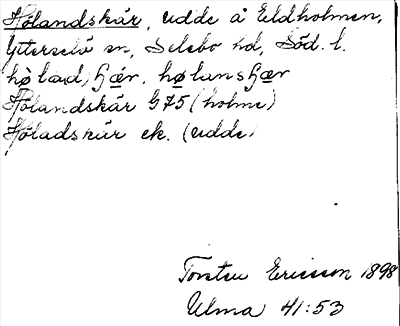 Hölandskär, udde å Eldholmen,
Ytterselö sn, Selebo hd, Söd. l.
hølad, ɧǽr, hølansɧær
Hölandskär G75 (holme)
Höladskär ek. (udde)
Torsten Ericsson 1898
Ulma 41:53